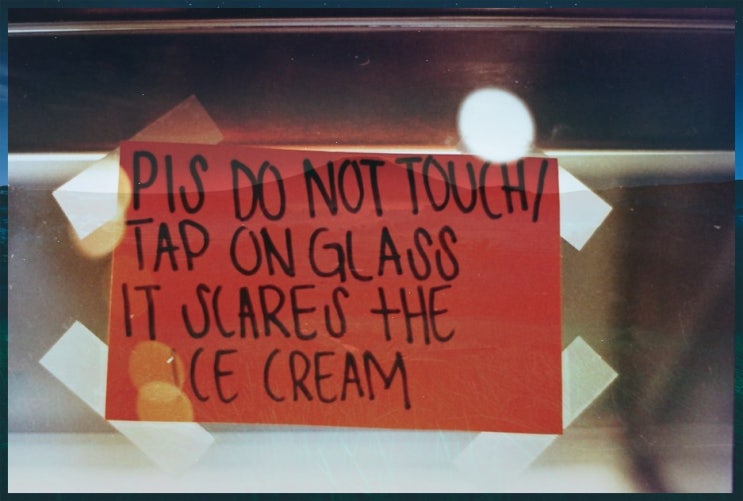 PlS DO NOT TOUCH/
TAP ON GLASS
IT SCARES THE
ICE CREAM